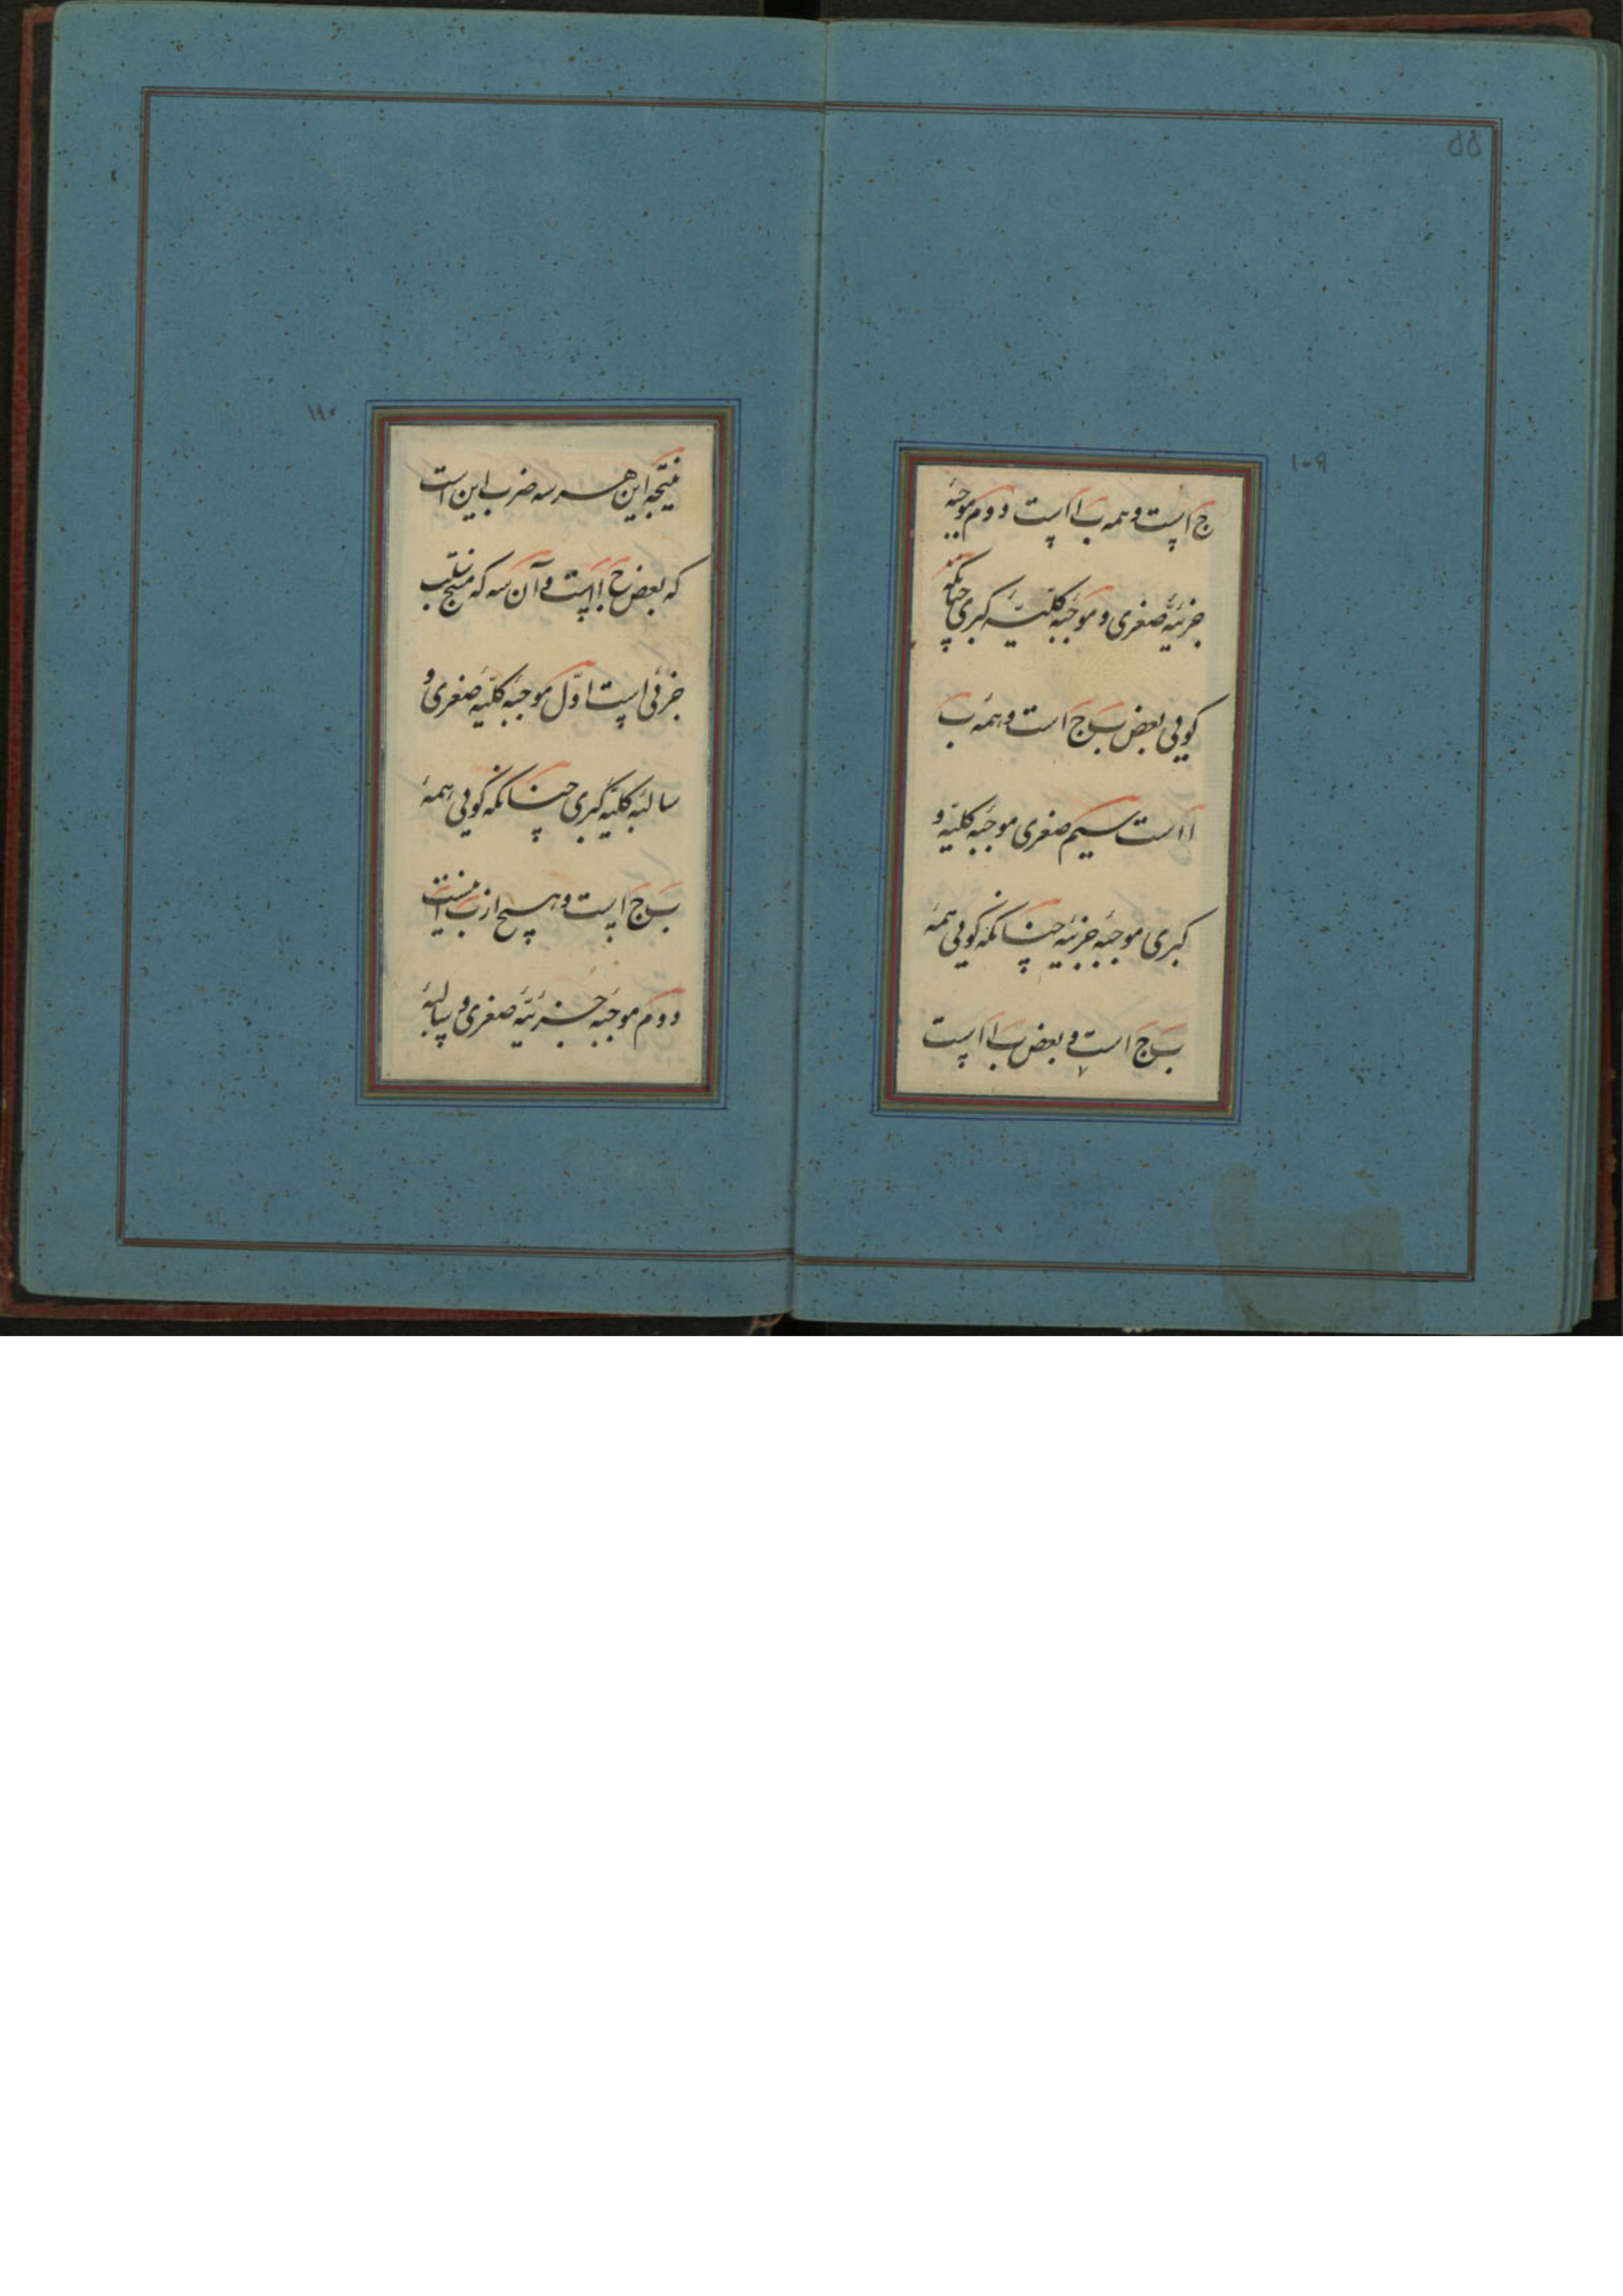 ۵۵
۱۰۹
ج است و همه ب ا است دوم موجبهٔ
جزئیهٔ صغری و موجبهٔ کلیهٔ کبری چنانکه
گویی بعض ب ج است و همهٔ ب
ا است سیم صغری موجبهٔ کلیه و
کبری موجبهٔ جزئیه چنانکه گویی همهٔ
ب ج است و بعض ب ا است
۱۱۰
نتیجه این هر سه ضرب این است
که بعض ج ا است و آن سه که منتج سلب
جزئی است اوّل موجبهٔ کلیهٔ صغری و
سالبهٔ کلیهٔ کبری چنانکه گویی همهٔ
ب ج است و هیچ از ب ا نیست
دوم موجبهٔ جزئیهٔ صغری و سالبهٔ